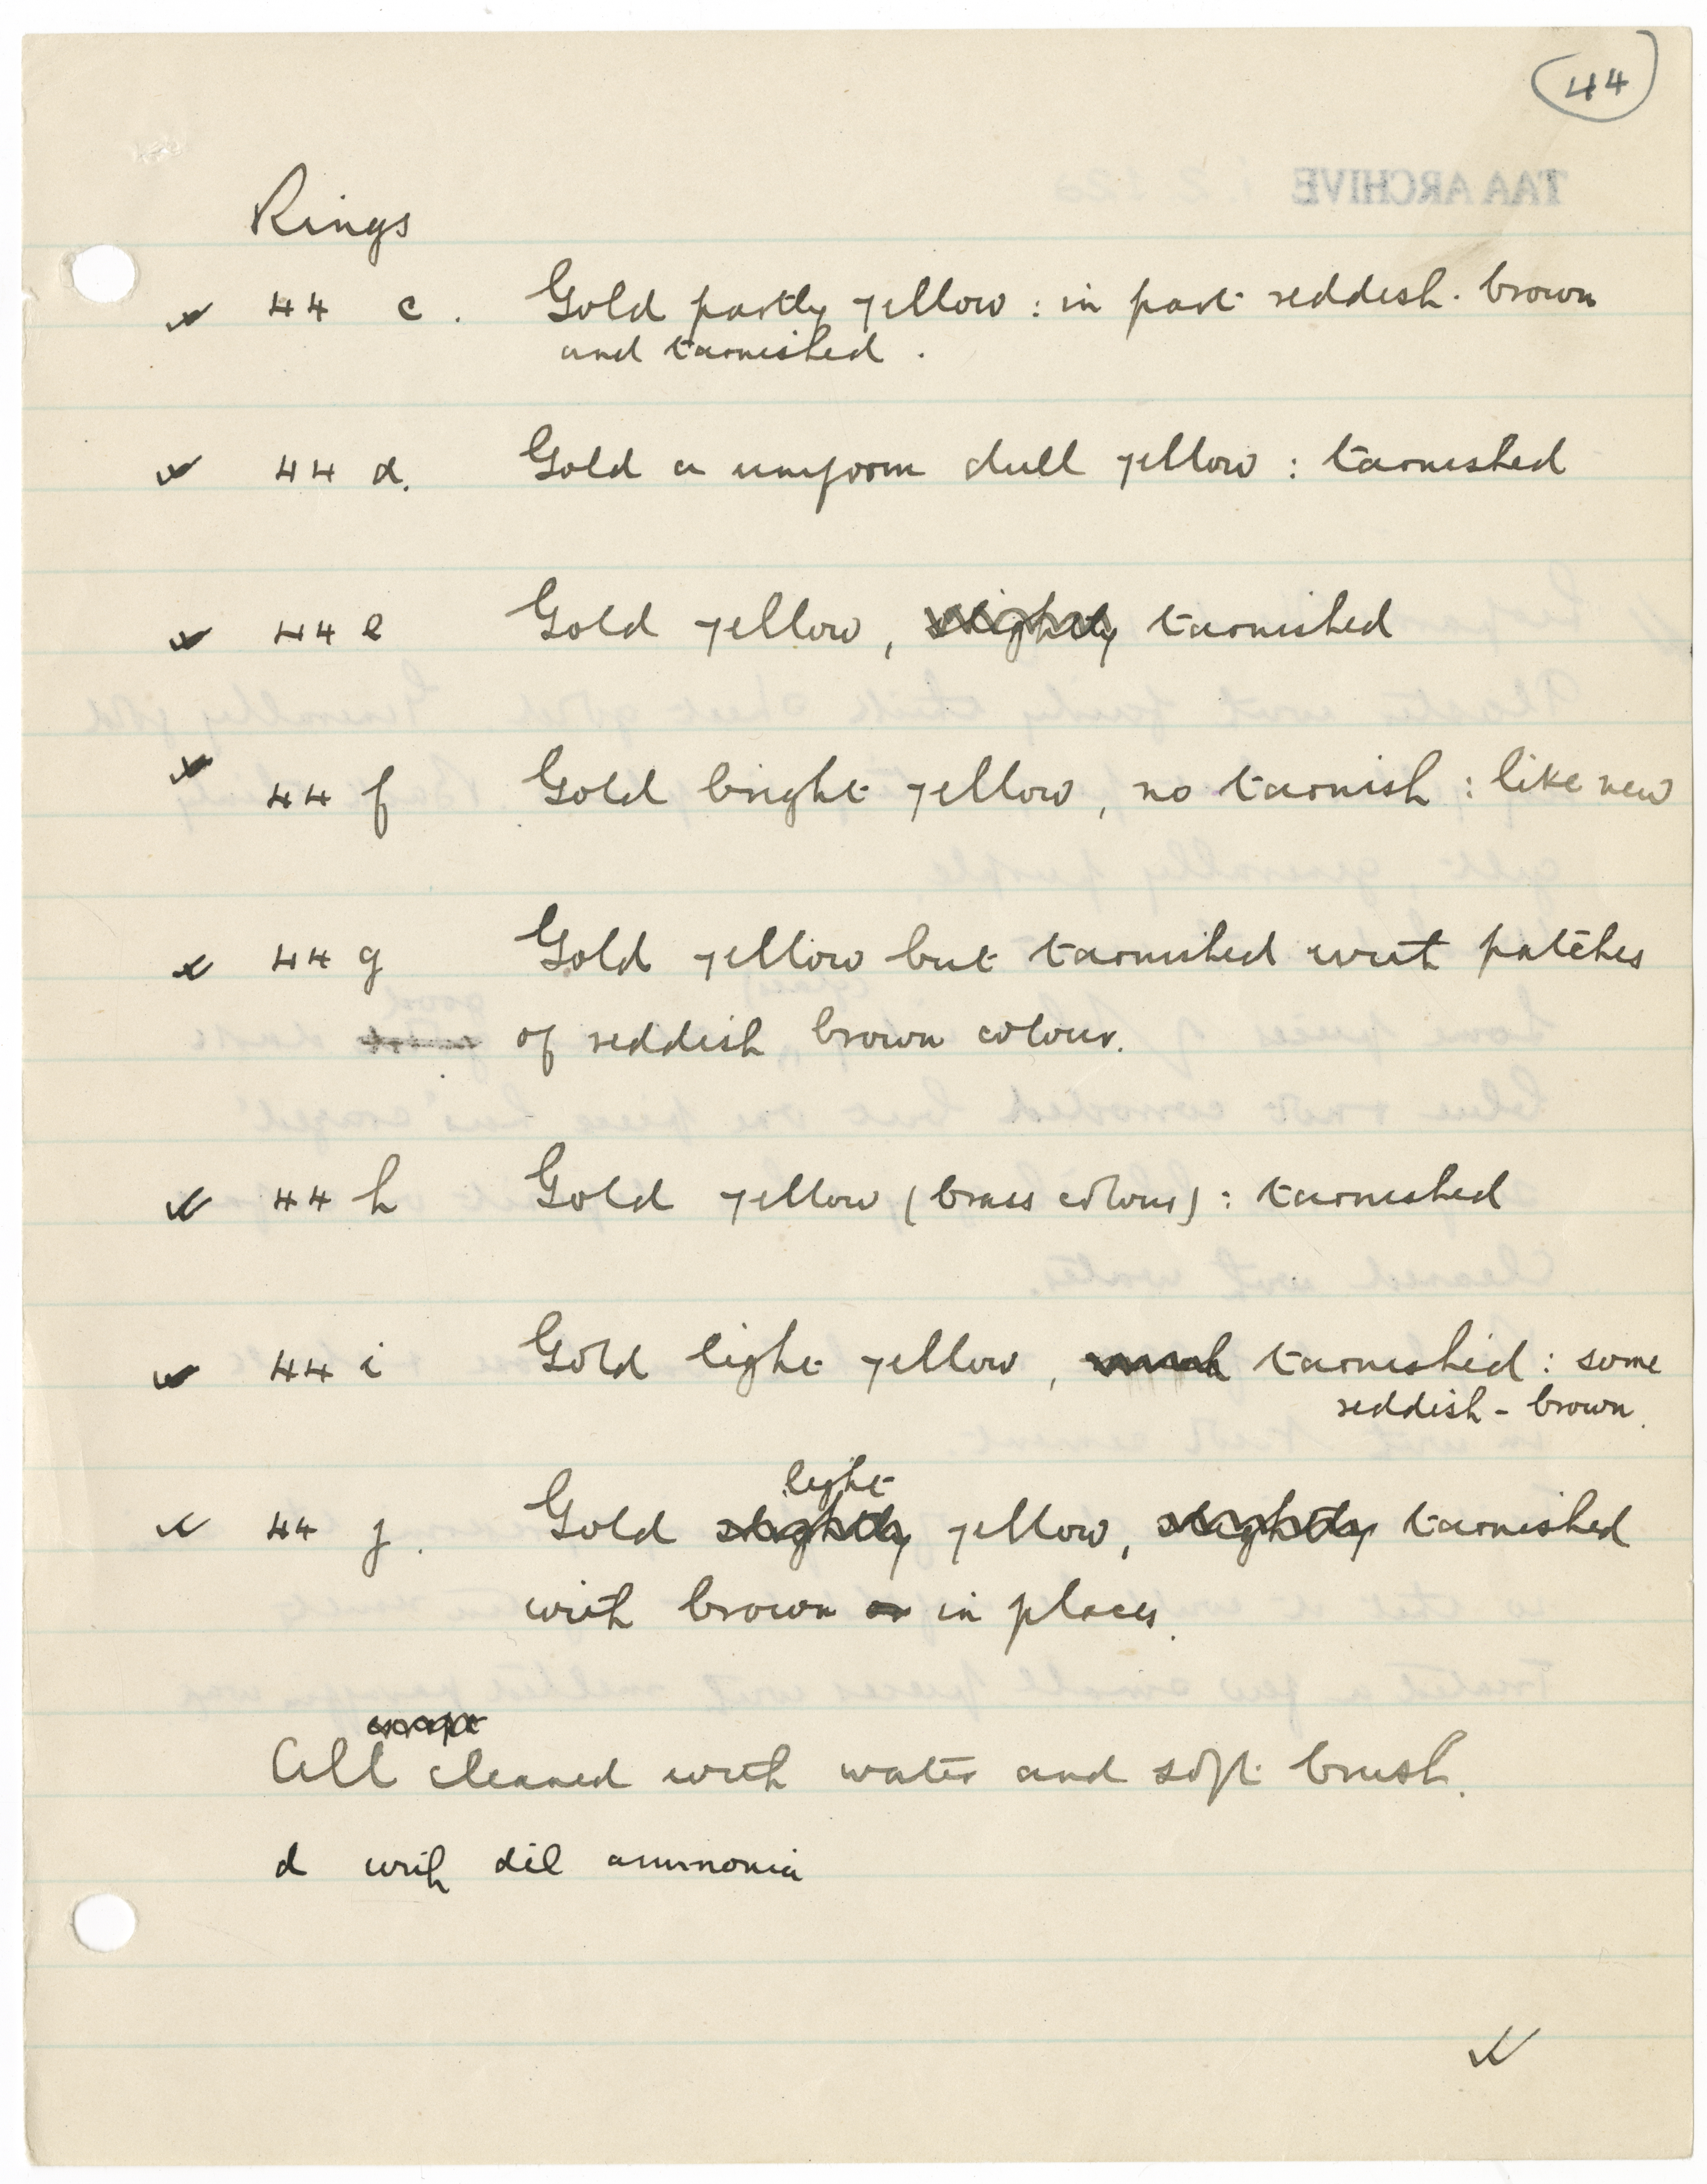 44
TAA ARCHIVE
Rings
44 c. Gold partly yellow : in part reddish-brown
and tarnished.
44 d. Gold a uniform dull yellow : tarnished
44 e Gold yellow, slightly tarnished
44 f Gold bright yellow, no tarnish : like new
44 g Gold yellow but tarnished with patches
of reddish brown colour.
44 h Gold yellow (brass colour) : tarnished
44 i Gold light yellow, much tarnished : some
reddish-brown.
light
44 j. Gold slightly yellow, slightly tarnished
with brown in places.
except
All cleaned with water and soft brush.
d with dil ammonia